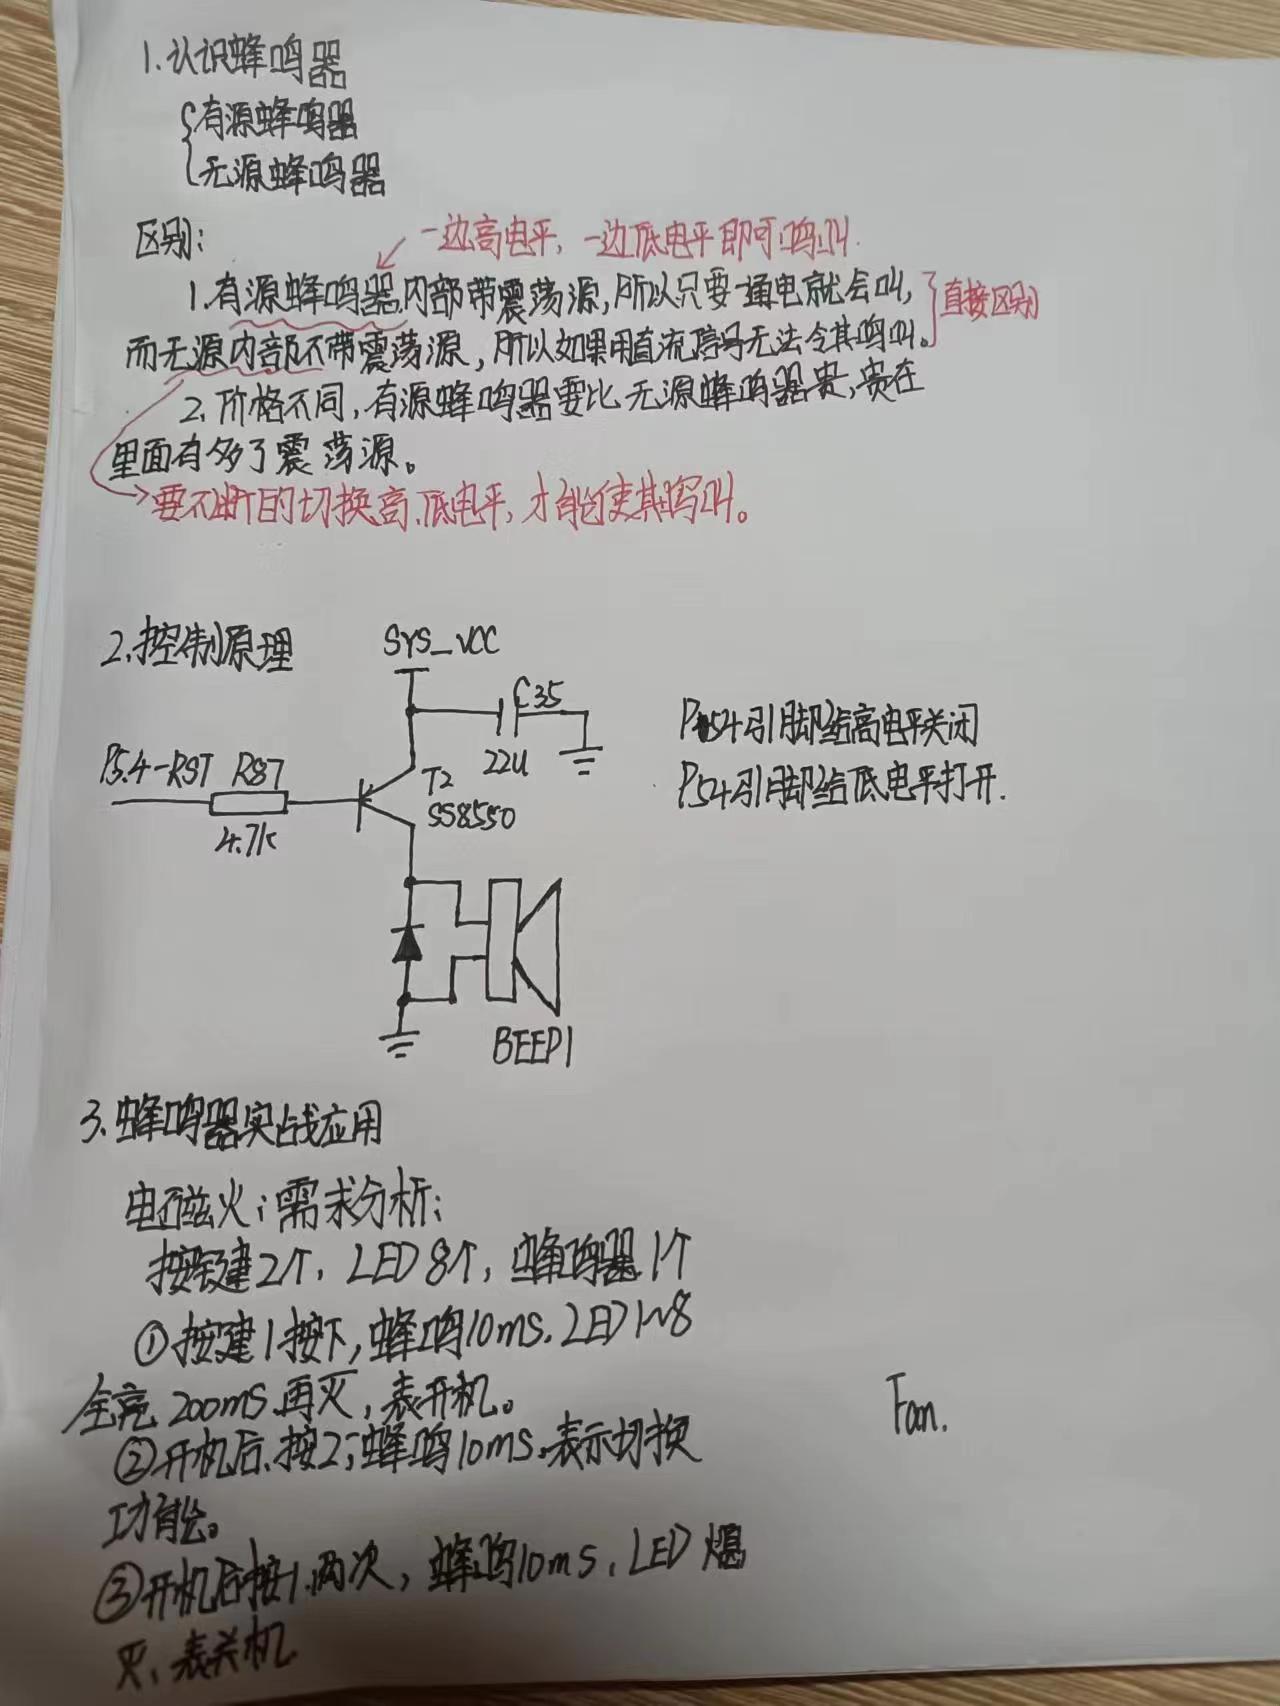 1.认识蜂鸣器
有源蜂鸣器
无源蜂鸣器
区别:
一边高电平,一边低电平即可鸣叫.
1.有源蜂鸣器内部带震荡源,所以只要一通电就会叫,
直接区别
而无源内部不带震荡源,所以如果用直流信号无法令其鸣叫。
2.价格不同,有源蜂鸣器要比无源蜂鸣器贵,贵在
里面有多了震荡源。
要不断的切换高、低电平,才能使其鸣叫。
2.控制原理
SYS_VCC
C35
22U
P5.4-RST R87
4.7k
T2
SS8550
P54引脚给高电平关闭
P54引脚给低电平打开.
BEEP1
3.蜂鸣器实战应用
电磁火;需求分析:
按键建2个,LED 8个,蜂鸣器1个
①按建1按下,蜂鸣10ms.LED1~8
全亮200ms再灭,表开机。
Fan.
②开机后.按2;蜂鸣10ms.表示切换
功能。
③开机后按1.两次,蜂鸣10ms,LED熄
灭、表关机